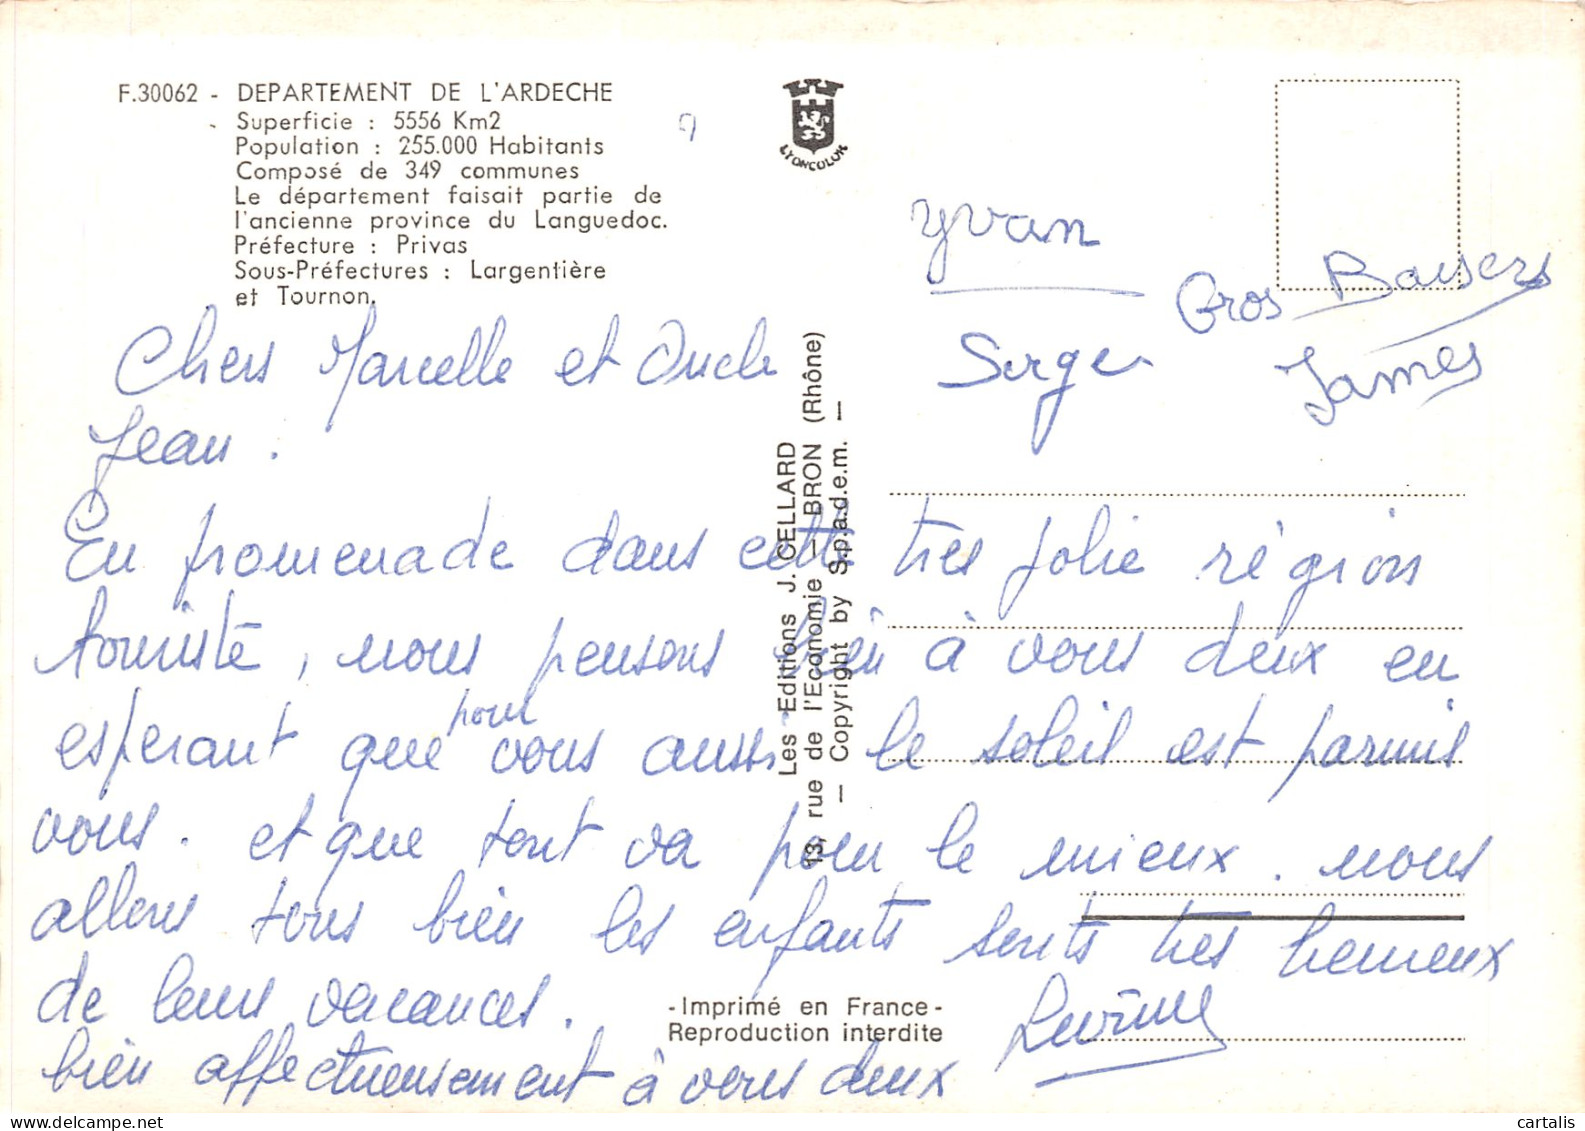 F.30062 - DEPARTEMENT DE L'ARDECHE
Superficie : 5556 Km2
Population : 255.000 Habitants
Composé de 349 communes
Le département faisait partie de
l'ancienne province du Languedoc.
Préfecture : Privas
Sous-Préfectures : Largentière
et Tournon.
LYONCOLOR
Yvan
Serge
Gros Baisers
James
Chers Marcelle et Oncle
Jean.
En promenade dans cette tres jolie région
touriste, nous pensons bien à vous deux en
esperant que pour vous aussi le soleil est parmis
vous. et que tout va pour le mieux. nous
allons tous bien les enfants sonts tres heureux
de leurs vacances.
bien affectueusement à vous deux
Les Editions J. CELLARD
13, rue de l'Economie - BRON (Rhône)
— Copyright by S.p.a.d.e.m. —
-Imprimé en France-
Reproduction interdite
cartalis